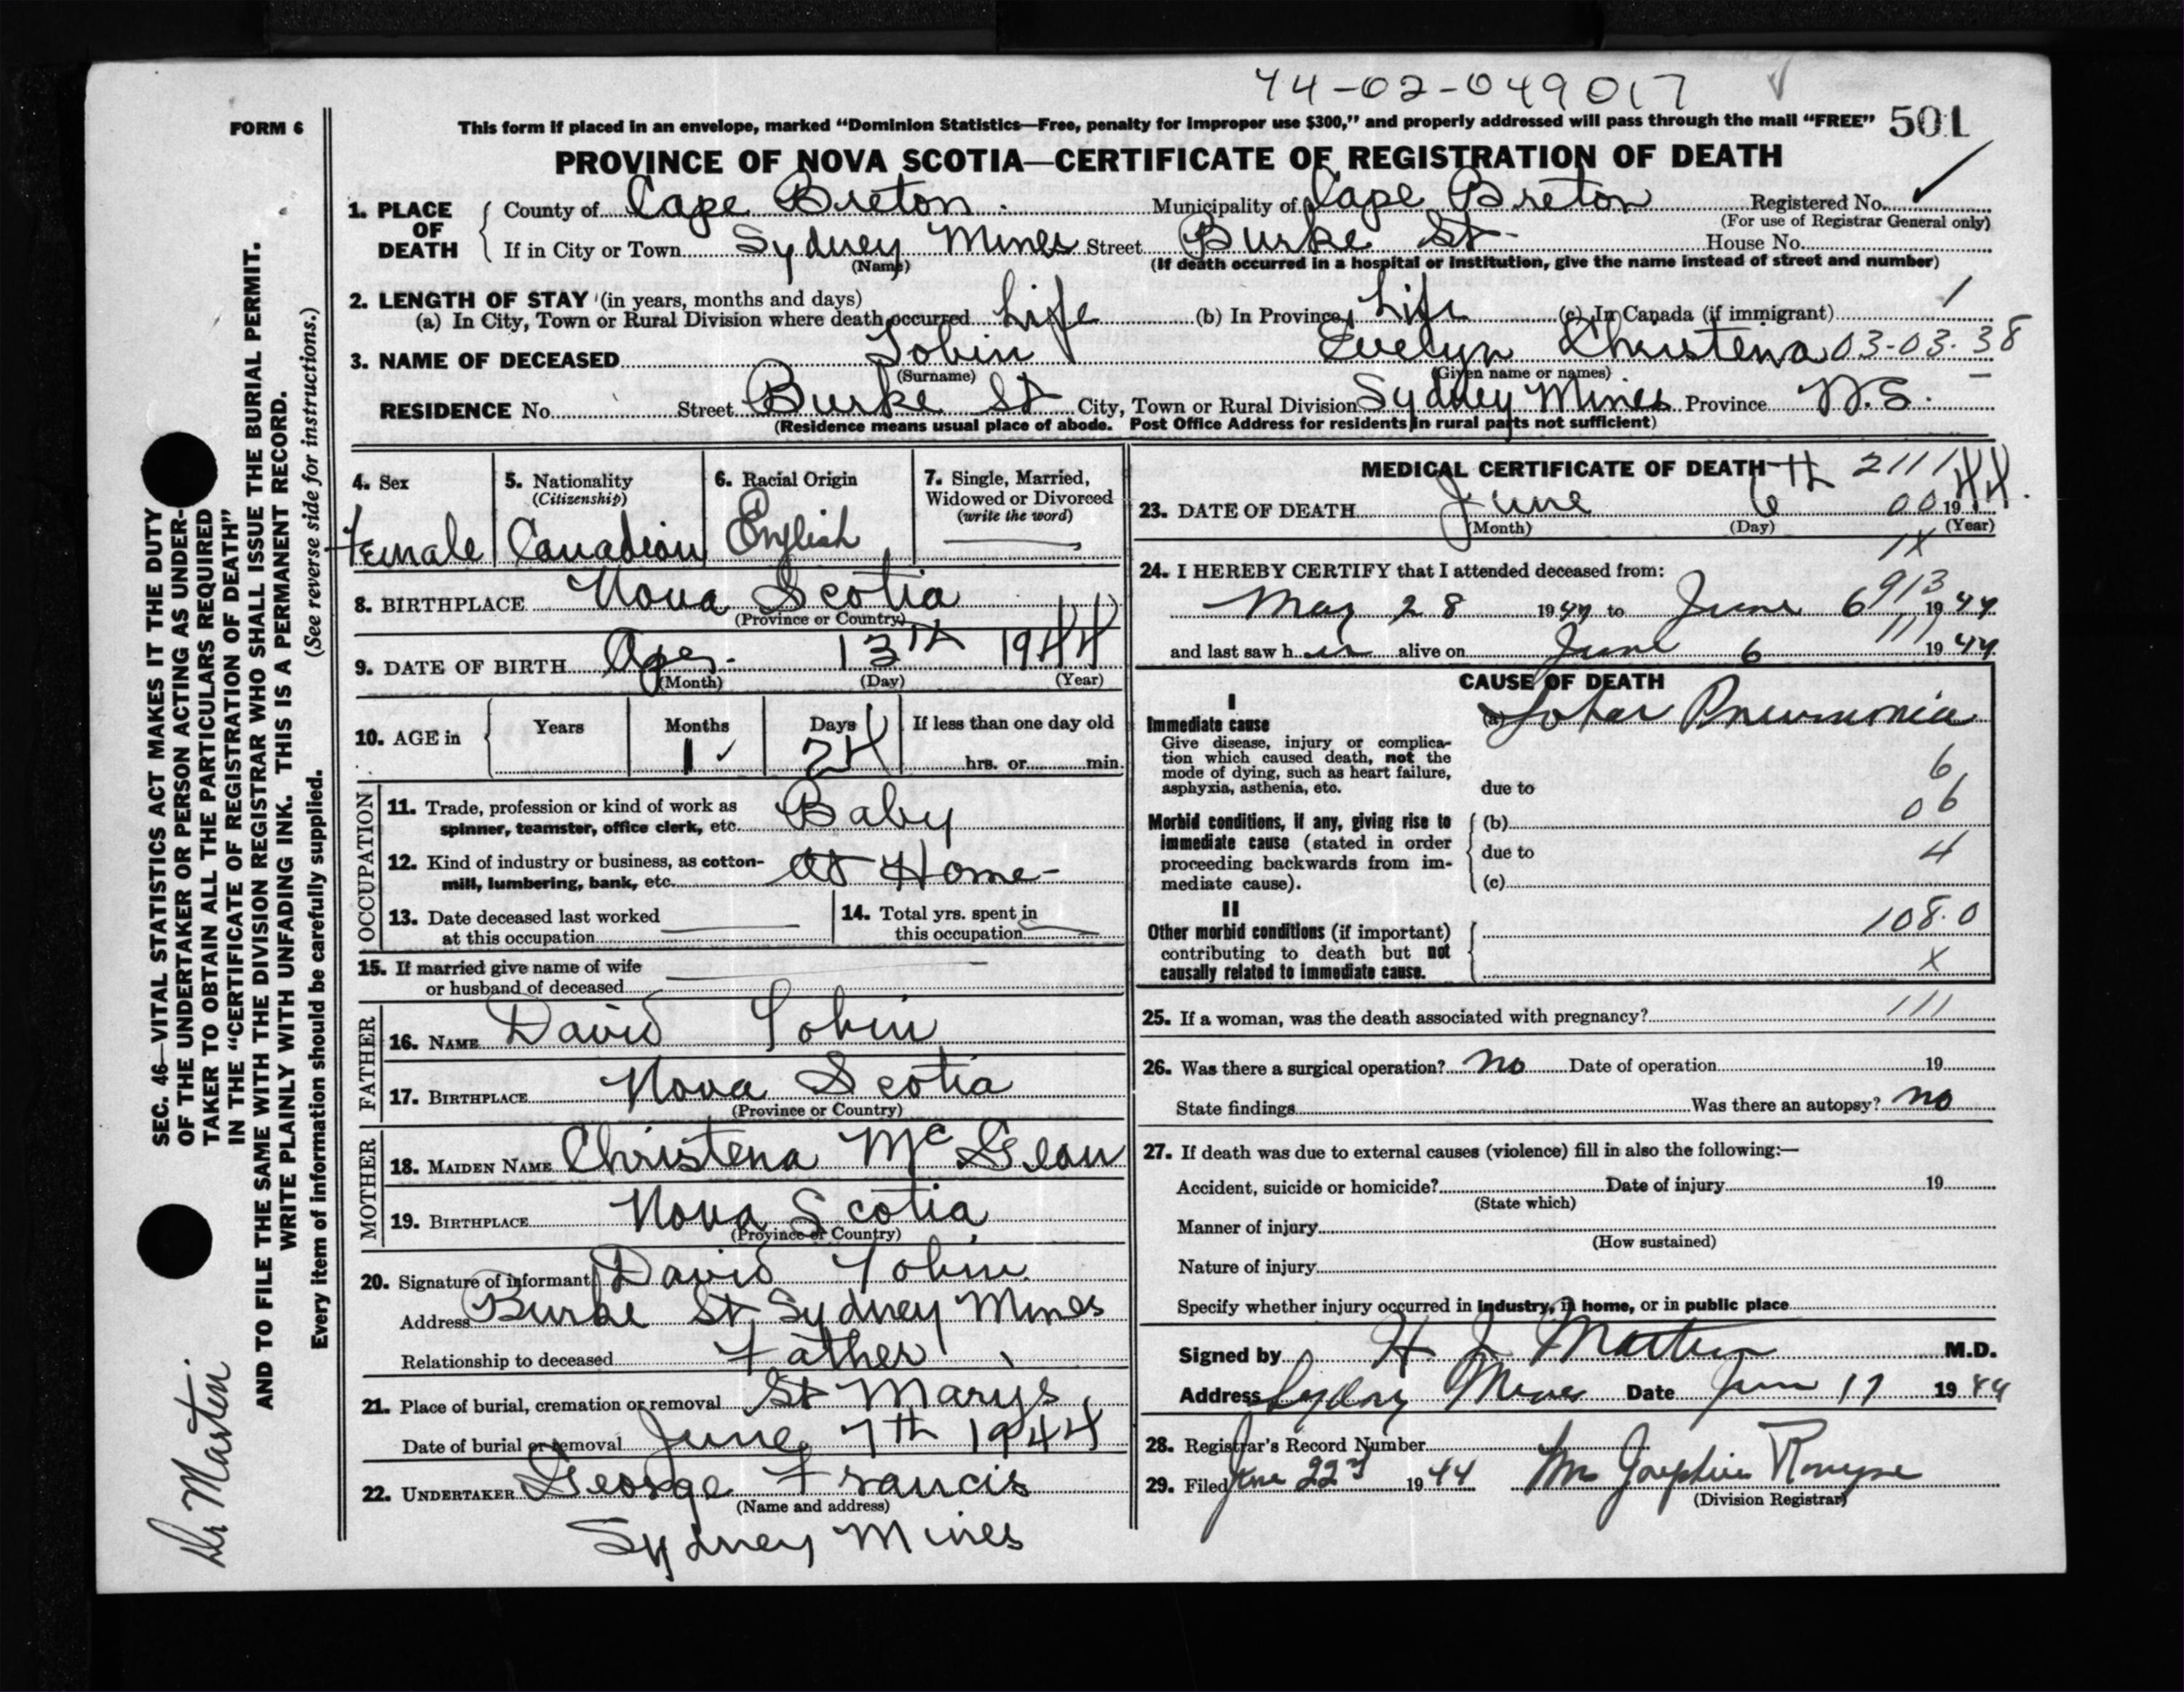 44-02-049017
FORM 6
This form if placed in an envelope, marked “Dominion Statistics—Free, penalty for improper use $300,” and properly addressed will pass through the mail “FREE” 501
PROVINCE OF NOVA SCOTIA—CERTIFICATE OF REGISTRATION OF DEATH
1. PLACE OF DEATH County of Cape Breton Municipality of Cape Breton Registered No.
(For use of Registrar General only)
If in City or Town Sydney Mines Street Burke St House No.
(Name) (If death occurred in a hospital or institution, give the name instead of street and number)
2. LENGTH OF STAY (in years, months and days)
(a) In City, Town or Rural Division where death occurred Life (b) In Province Life (c) In Canada (if immigrant)
3. NAME OF DECEASED Tobin Evelyn Christena 03-03-38
(Surname) (Given name or names)
RESIDENCE No. Street Burke St City, Town or Rural Division Sydney Mines Province N.S.
(Residence means usual place of abode. Post Office Address for residents in rural parts not sufficient)
4. Sex
Female
5. Nationality
(Citizenship)
Canadian
6. Racial Origin
English
7. Single, Married,
Widowed or Divorced
(write the word)
8. BIRTHPLACE Nova Scotia
(Province or Country)
9. DATE OF BIRTH Apr. 13th 1944
(Month) (Day) (Year)
10. AGE in Years Months Days If less than one day old
1 24 hrs. or min.
OCCUPATION
11. Trade, profession or kind of work as
spinner, teamster, office clerk, etc. Baby
12. Kind of industry or business, as cotton-
mill, lumbering, bank, etc. At Home
13. Date deceased last worked
at this occupation
14. Total yrs. spent in
this occupation
15. If married give name of wife
or husband of deceased
FATHER
16. NAME David Tobin
17. BIRTHPLACE Nova Scotia
(Province or Country)
MOTHER
18. MAIDEN NAME Christena Mc
19. BIRTHPLACE Nova Scotia
(Province or Country)
20. Signature of informant David Tobin
Address Burke St Sydney Mines
Relationship to deceased Father
21. Place of burial, cremation or removal St Marys
Date of burial or removal June 7th 1944
22. UNDERTAKER George Francis
(Name and address)
Sydney Mines
MEDICAL CERTIFICATE OF DEATH 2111
23. DATE OF DEATH June 6th 00 1944.
(Month) (Day) (Year)
1X
24. I HEREBY CERTIFY that I attended deceased from:
913
May 28 1944 to June 6 1944
111
and last saw her alive on June 6 1944
CAUSE OF DEATH
I
Immediate cause (a) Lobar Pneumonia
Give disease, injury or complica-
tion which caused death, not the
mode of dying, such as heart failure,
asphyxia, asthenia, etc. due to
6
06
Morbid conditions, if any, giving rise to (b)
immediate cause (stated in order due to 4
proceeding backwards from im-
mediate cause). (c)
II
108.0
Other morbid conditions (if important)
contributing to death but not
causally related to immediate cause. X
25. If a woman, was the death associated with pregnancy? 111
26. Was there a surgical operation? no Date of operation 19
State findings Was there an autopsy? no
27. If death was due to external causes (violence) fill in also the following:—
Accident, suicide or homicide? Date of injury 19
(State which)
Manner of injury
(How sustained)
Nature of injury
Specify whether injury occurred in industry, in home, or in public place
Signed by H J Martin M.D.
Address Sydney Mines Date June 17 1944
28. Registrar's Record Number
29. Filed June 22nd 1944 Mrs Josephine
(Division Registrar)
SEC. 46—VITAL STATISTICS ACT MAKES IT THE DUTY
OF THE UNDERTAKER OR PERSON ACTING AS UNDER-
TAKER TO OBTAIN ALL THE PARTICULARS REQUIRED
IN THE “CERTIFICATE OF REGISTRATION OF DEATH”
AND TO FILE THE SAME WITH THE DIVISION REGISTRAR WHO SHALL ISSUE THE BURIAL PERMIT.
WRITE PLAINLY WITH UNFADING INK. THIS IS A PERMANENT RECORD.
Every item of information should be carefully supplied. (See reverse side for instructions.)
Dr Martin